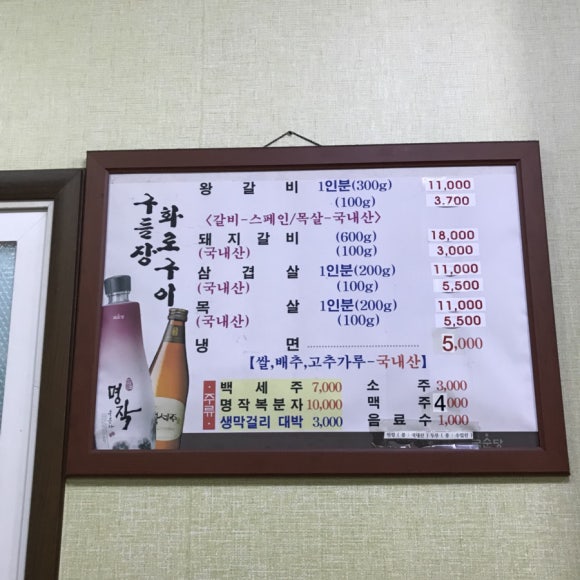 구들장
화로구이
왕갈비 1인분(300g) 11,000
(100g) 3,700
<갈비-스페인/목살-국내산>
돼지갈비 (600g) 18,000
(국내산) (100g) 3,000
삼겹살 1인분(200g) 11,000
(국내산) (100g) 5,500
목살 1인분(200g) 11,000
(국내산) (100g) 5,500
냉면 5,000
【쌀,배추,고추가루-국내산】
·주류·
백세주 7,000 소주 3,000
명작복분자 10,000 맥주 4,000
생막걸리 대박 3,000 음료수 1,000
명작